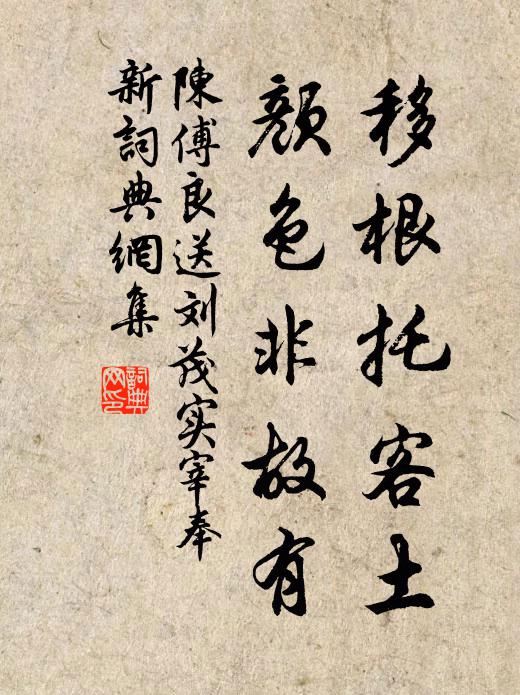 移根托客土
颜色非故有
陳傅良送刘茂实宰奉
新詞典網集
詞典
网印